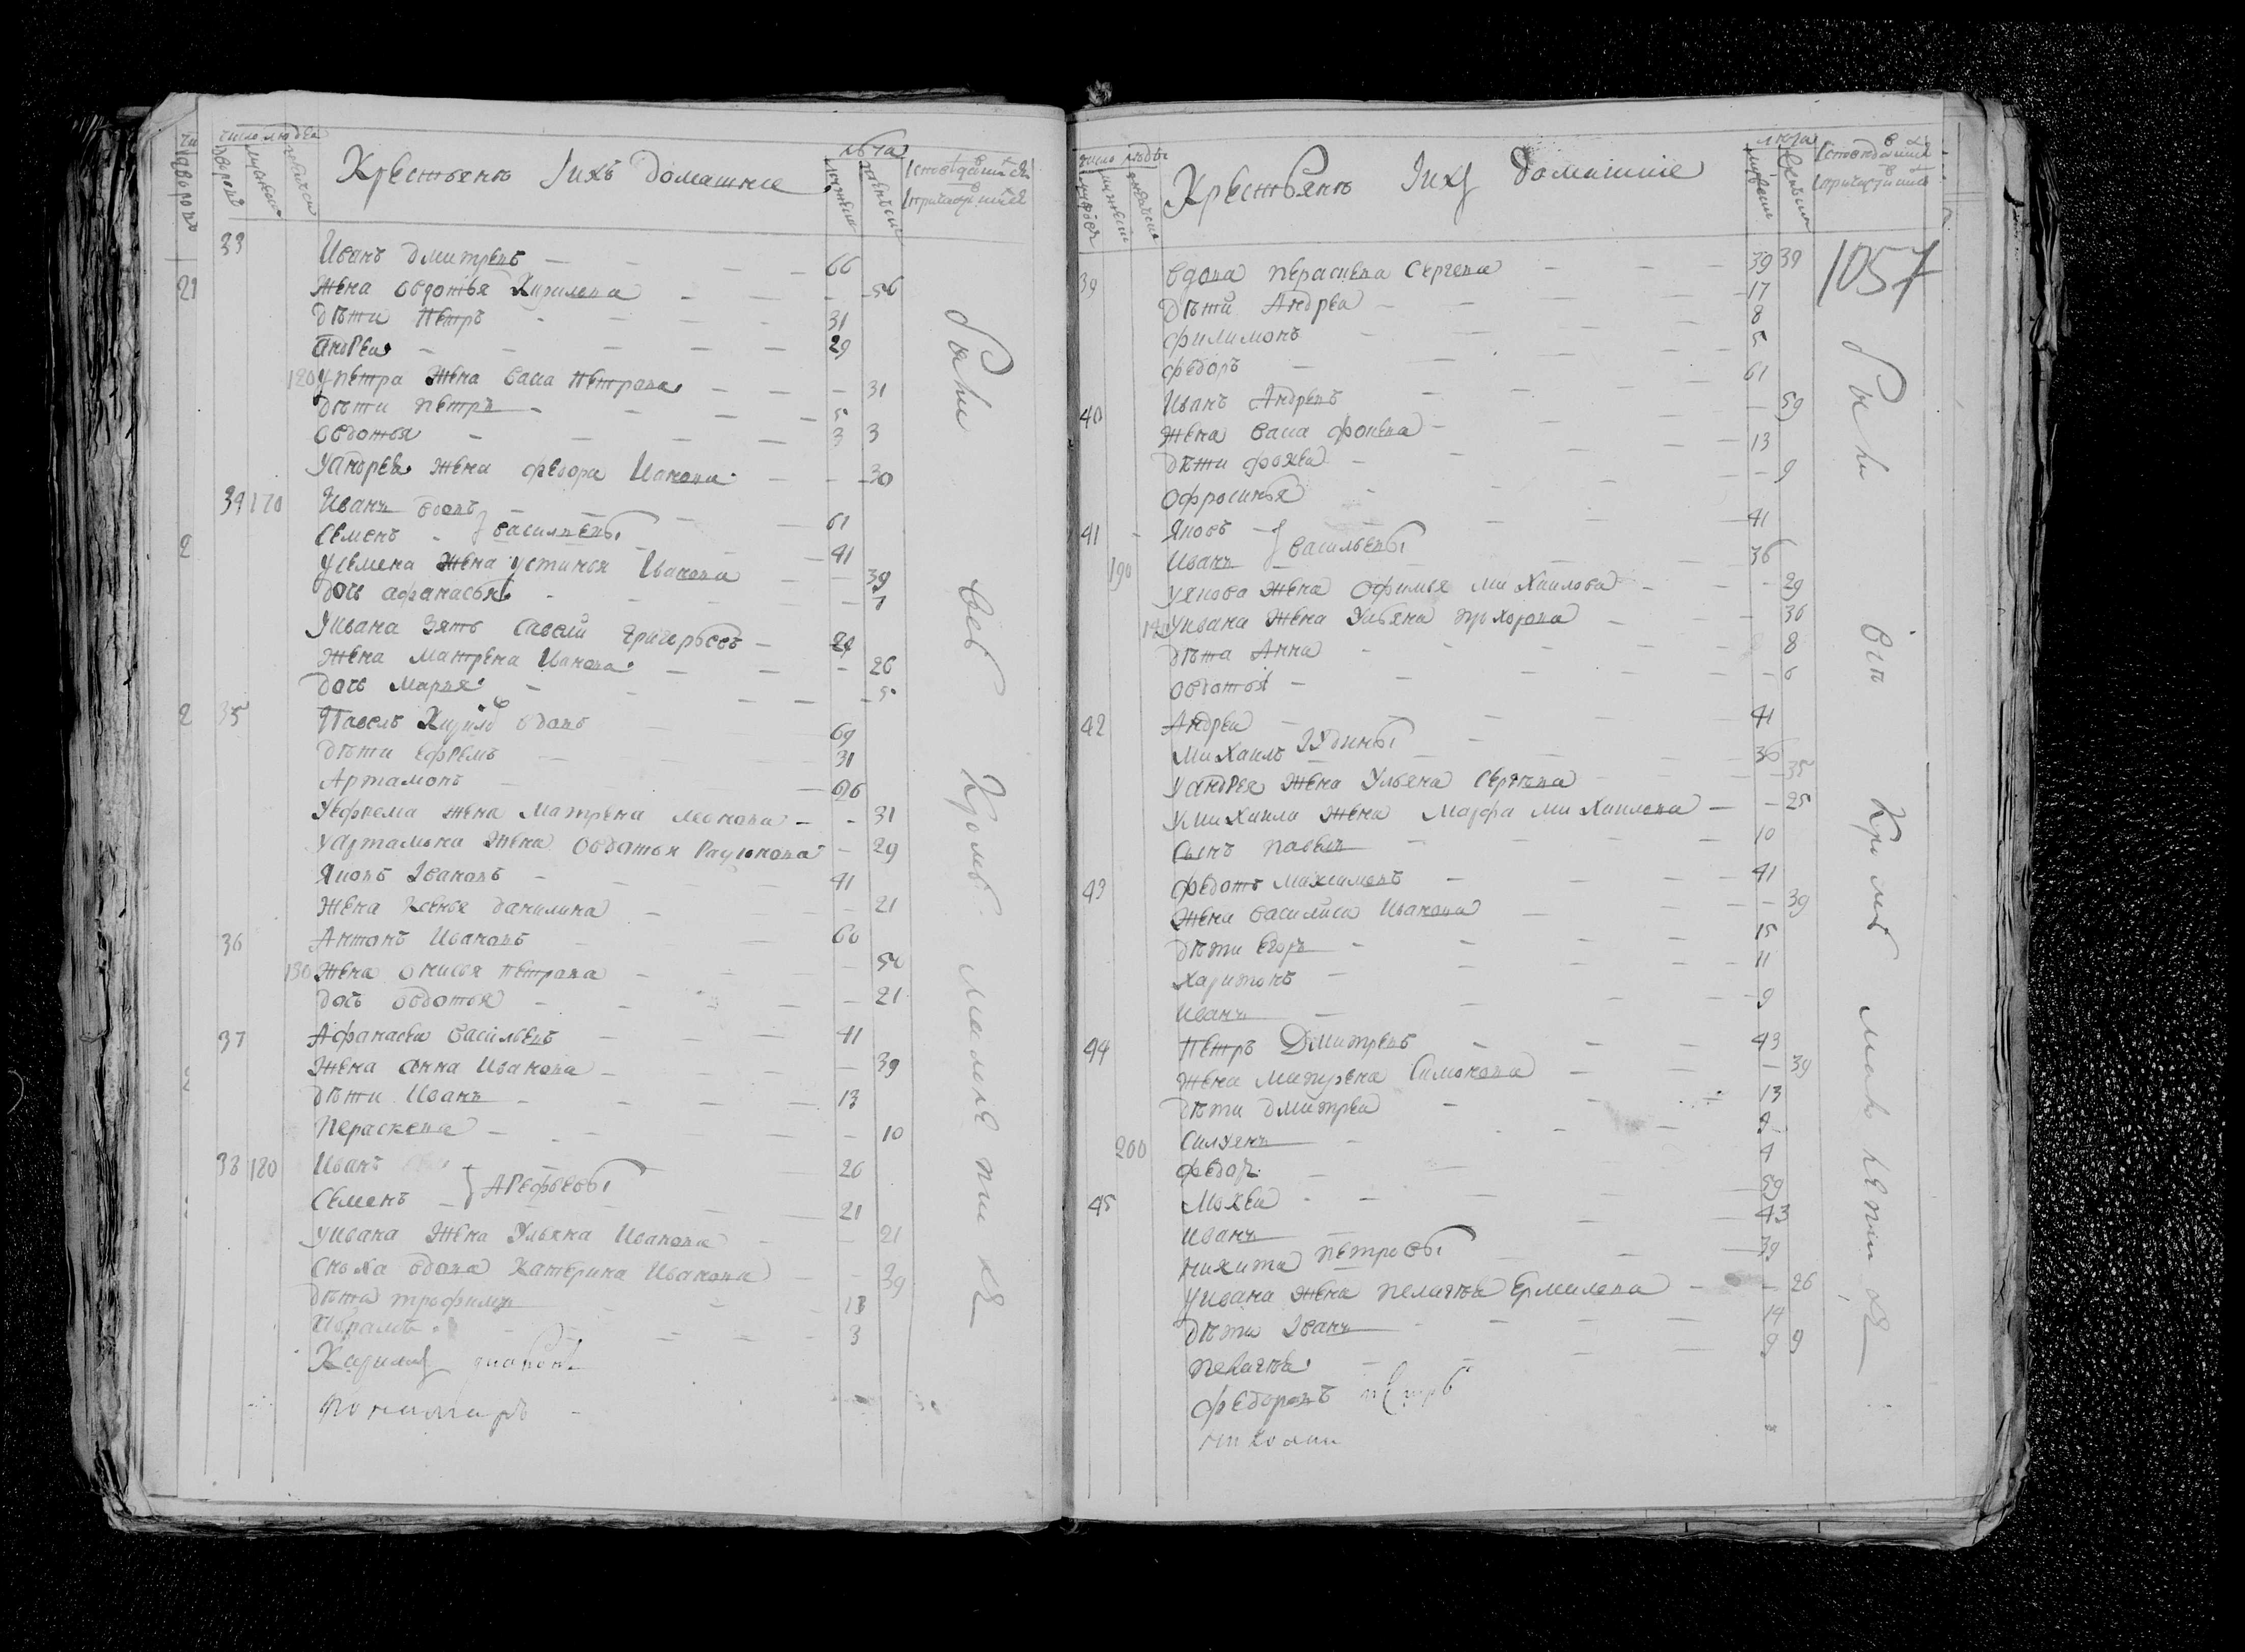 число людеи
дворовъ
мужеска
женска
Крестьянъ Iихъ домашние
лѣта
мужеск
женъски
33 Иванъ дмитревъ — — — 66
21 жена овдотья Кирилова — — 56
дѣти петръ — — — 31
андреи — — — 29
120 у петра жена васа петрова — — 31
дѣти петръ — — — 5
овдотья — — — 3 3
у андрея жена федора Иванова — — 30
34 170 Иванъ вдовъ — — 61
2 семенъ } васильевы — 41
у семена жена устинья Иванова — — 39
дочь афанасья — — 7
у ивана зять савели григорьевъ — 24
жена матрена Иванова — — 26
дочь марья — — 5
2 35 Павелъ Кирилов вдовъ 69
дѣти ефремъ — 31
Артамонъ — 26
у ефрема жена матрена леонова — — 31
у артамона жена овдотья — 29
Яковъ Iвановъ — 41
жена ксенья данилина — — 21
36 Антонъ Ивановъ — 60
130 жена онисья петрова — — 50
дочь овдотья — — 21
37 Афанасеи васильевъ — 41
жена анна Иванова — — 39
дѣти Иванъ — — 13
пераскева — — 10
38 180 Иванъ — 26
семенъ } Арефьевы — 21
у ивана жена Ульяна Иванова — 21
сноха вдова катерина Иванова — — 39
дѣти трофимъ — 13
Абрамъ — 3
пономаръ
Были всѣ кромѣ малолѣтних
число людеи
мужеск
Крестьянъ Iихъ домашние
лѣта
мужески
женъски
1057
39 вдова пераскева сергева — — 39 39
дѣти Андреи — 17
филимонъ — 8
федоръ — 5
40 Иванъ Андревъ — 61
жена васа фокева — — 59
дѣти фокеи — 13
офросинья — — 9
41 Яковъ — 41
190 Иванъ } васильевы — 36
у якова жена офимья михаилова — — 29
у ивана жена Ульяна прохорова — — 36
дѣти Анна — 8
овдотья — — 6
42 Андреи — 41
михаилъ Юдины — 36
у андрея жена Ульяна сергѣева — 35
у михаила жена марфа михаилова — — 25
сынъ павелъ — 10
43 федотъ максимовъ — 41
жена василиса Иванова — — 39
дѣти Егоръ — 15
харитонъ — 11
Иванъ — 9
44 петръ Дмитревъ — 43
жена матрена симонова — — 39
дѣти дмитреи — 13
200 силуянъ — 9
федоръ — 4
45 Мокеи — 59
Иванъ — 43
никита петровы — 39
у ивана жена пелагѣя Ермилова — — 26
дѣти Iванъ — 14
пелагѣя — 9 9
федоровъ петръ
николаи
Были всѣ кромѣ малолѣтних